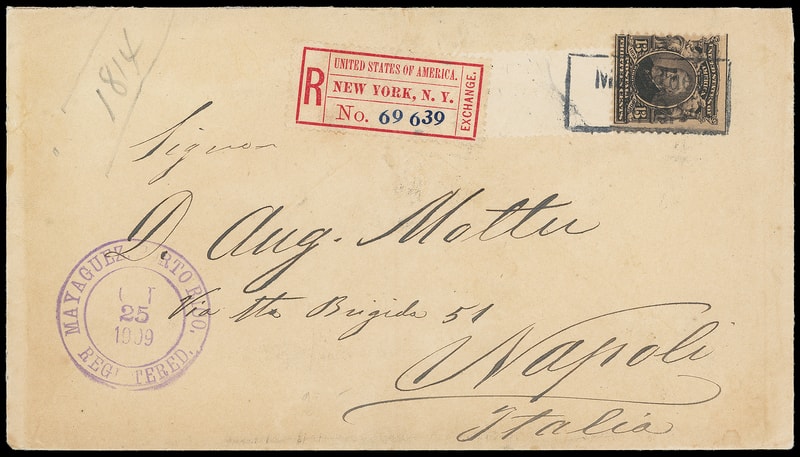 1814
R
UNITED STATES OF AMERICA.
NEW YORK, N. Y.
No. 69 639
EXCHANGE.
M
13 13
Signor
D. Aug. Mottu
Via Sta Brigida 51
Napoli
Italia
MAYAGUEZ RTO R O.
25
1909
REG TERED.